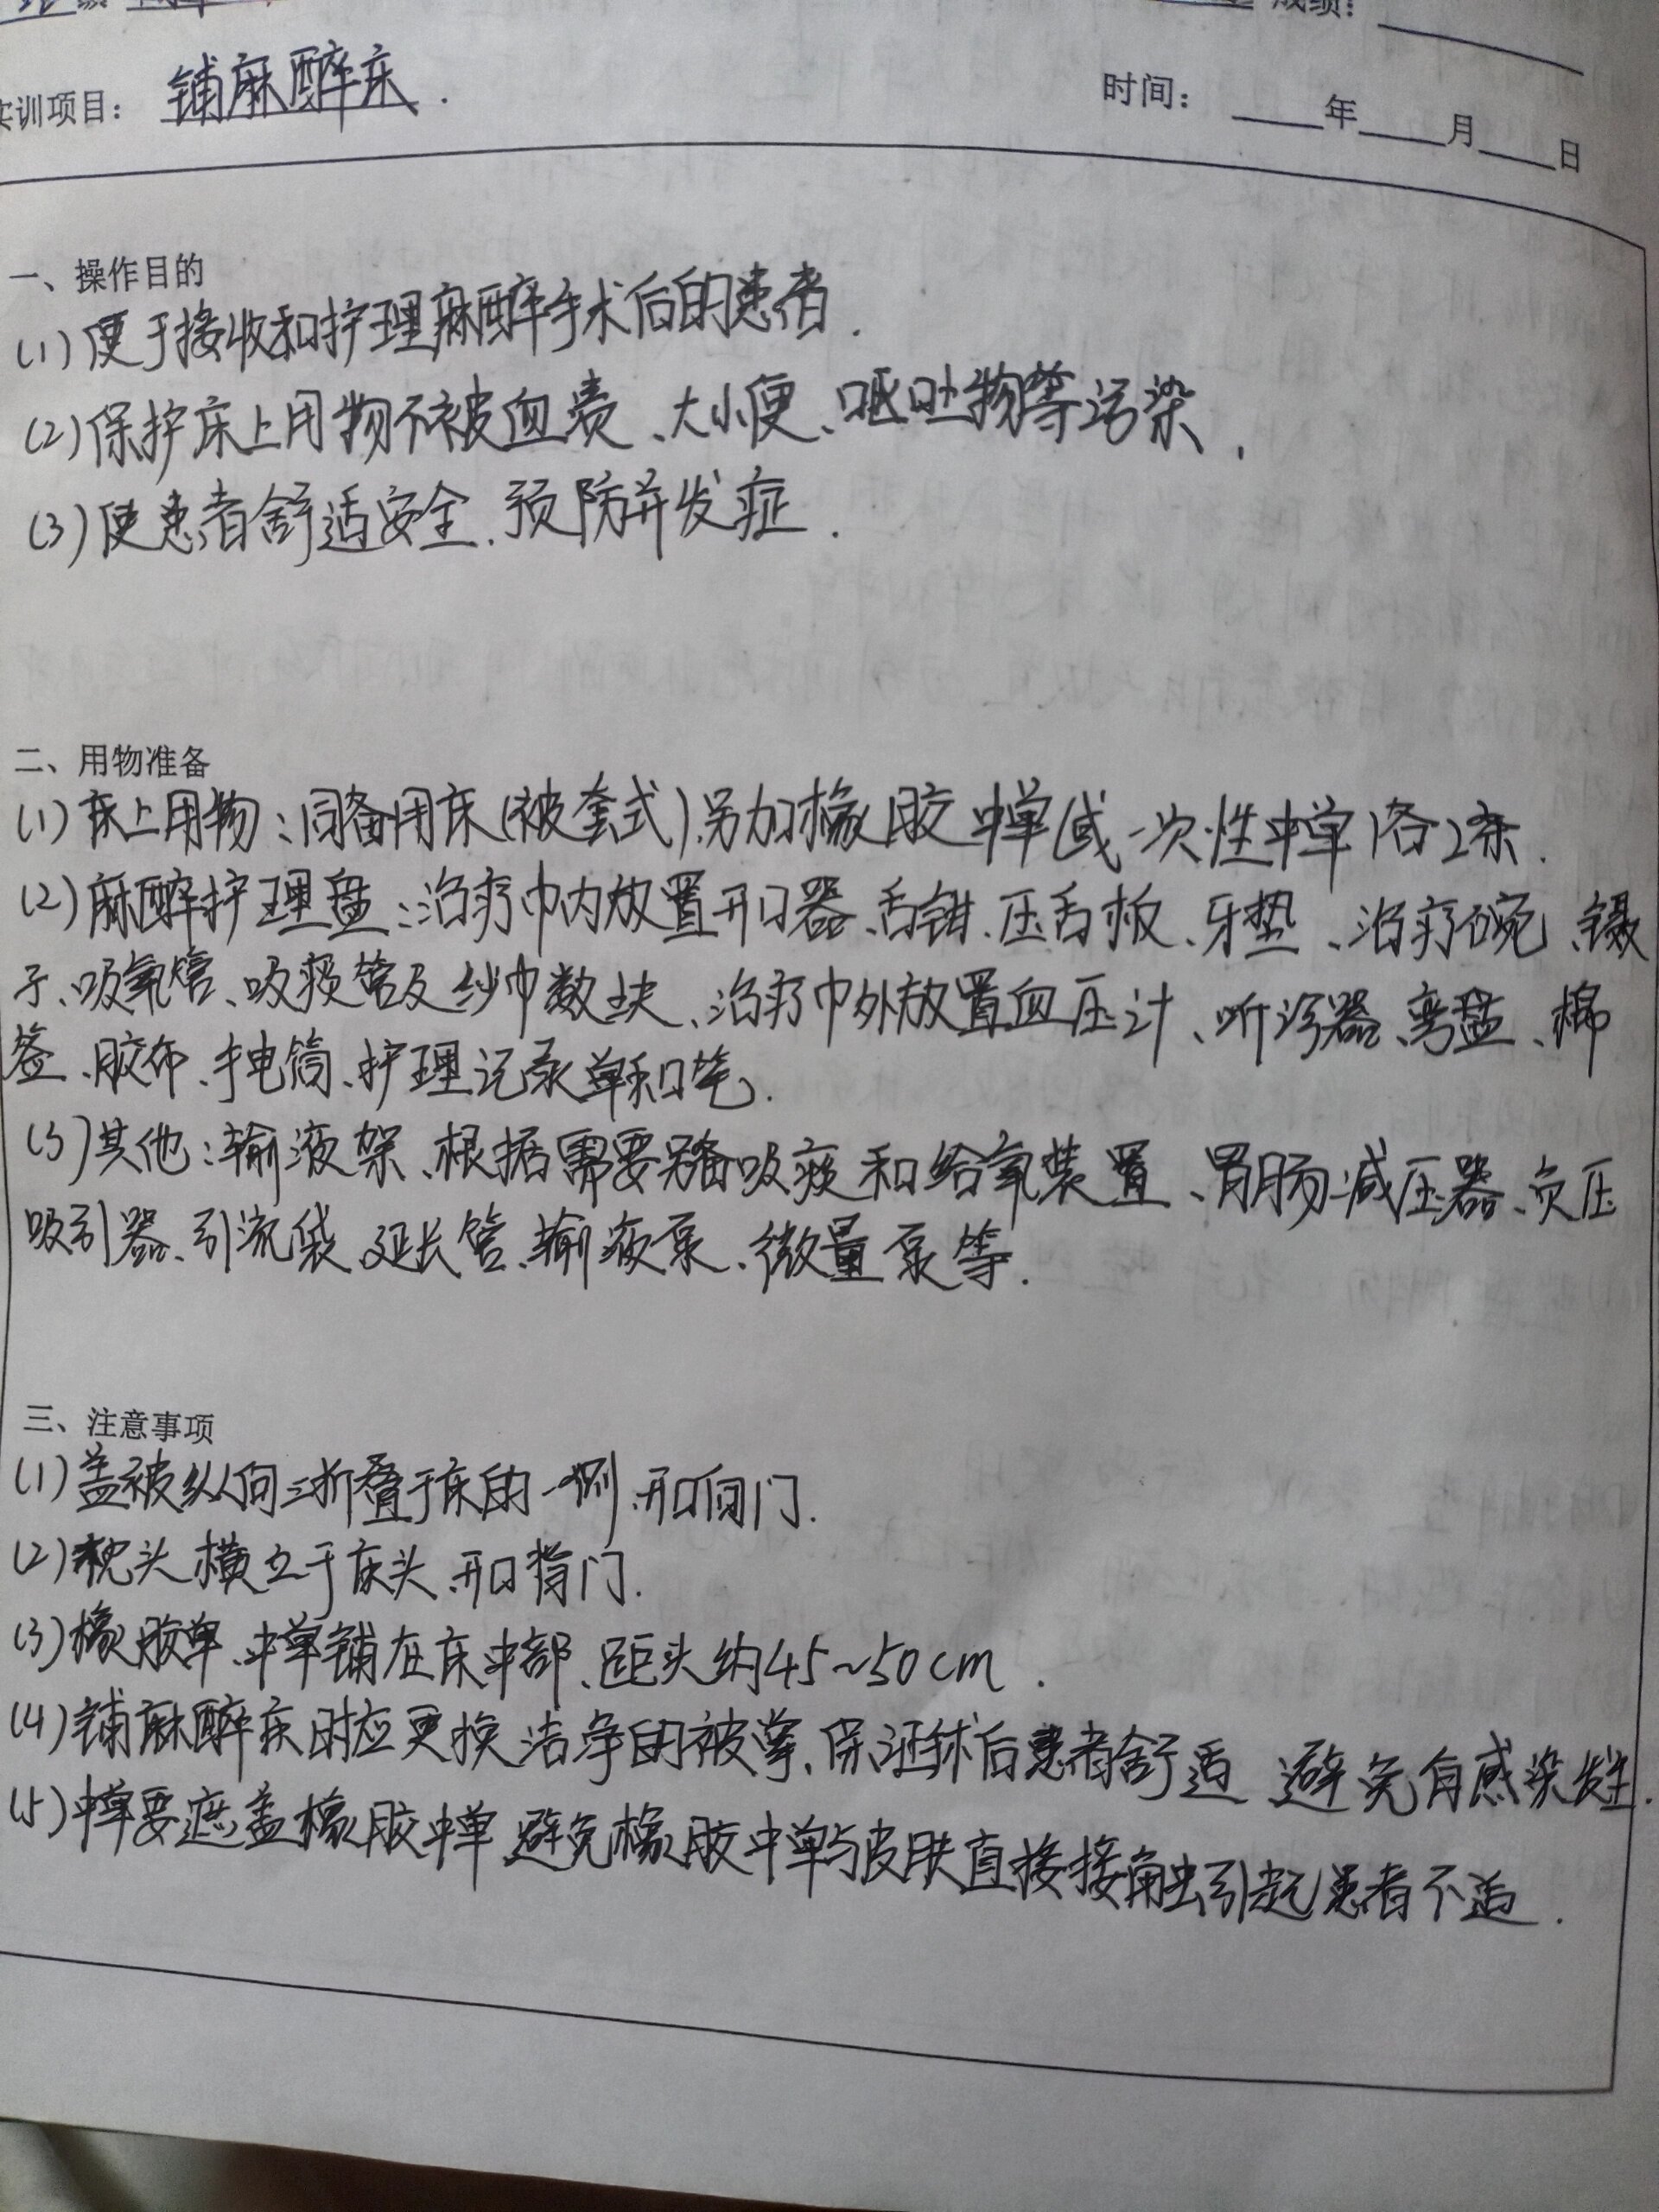 成绩：
实训项目： 铺麻醉床.
时间： 年 月 日
一、操作目的
(1)便于接收和护理麻醉手术后的患者.
(2)保护床上用物不被血渍、大小便、呕吐物等污染.
(3)使患者舒适安全.预防并发症.
二、用物准备
(1)床上用物:同备用床(被套式).另加橡胶中单(或一次性中单)各2条.
(2)麻醉护理盘:治疗巾内放置开口器、舌钳、压舌板、牙垫、治疗碗、镊
子、吸氧管、吸痰管及纱巾数块、治疗巾外放置血压计、听诊器、弯盘、棉
签、胶布、手电筒、护理记录单和笔.
(3)其他:输液架、根据需要另备吸痰和给氧装置、胃肠减压器、负压
吸引器、引流袋、延长管、输液泵、微量泵等.
三、注意事项
(1)盖被纵向三折叠于床的一侧.开口向门.
(2)枕头横立于床头.开口背门.
(3)橡胶单、中单铺在床中部、距头约45~50cm.
(4)铺麻醉床时应更换洁净的被单、保证术后患者舒适 避免有感染发生.
(5)中单要遮盖橡胶中单 避免橡胶中单与皮肤直接接触引起患者不适.